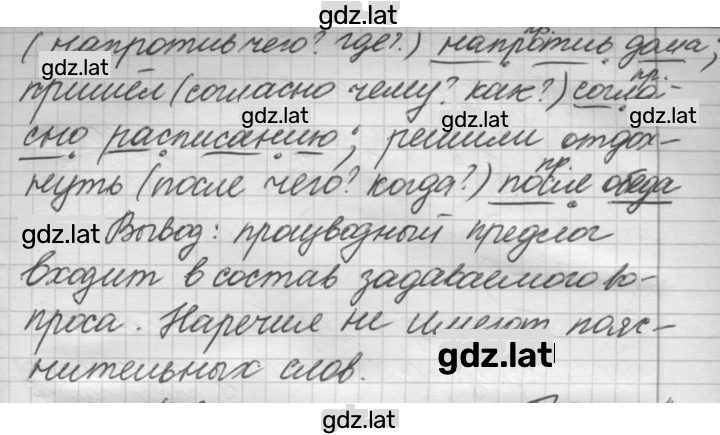 gdz.lat
(напротив чего? где?) напротив дома;
gdz.lat
пр.
пришёл (согласно чему? как?) согла-
gdz.lat
gdz.lat
gdz.lat
пр.
сно расписанию; решили отдох-
нуть (после чего? когда?) после обеда
пр.
gdz.lat
Вывод: производный предлог
входит в состав задаваемого во-
проса. Наречия не имеют пояс-
gdz.lat
нительных слов.
gdz.lat